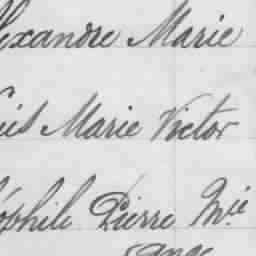 lexandre Marie
uis Marie Victor
ophile Pierre Mie